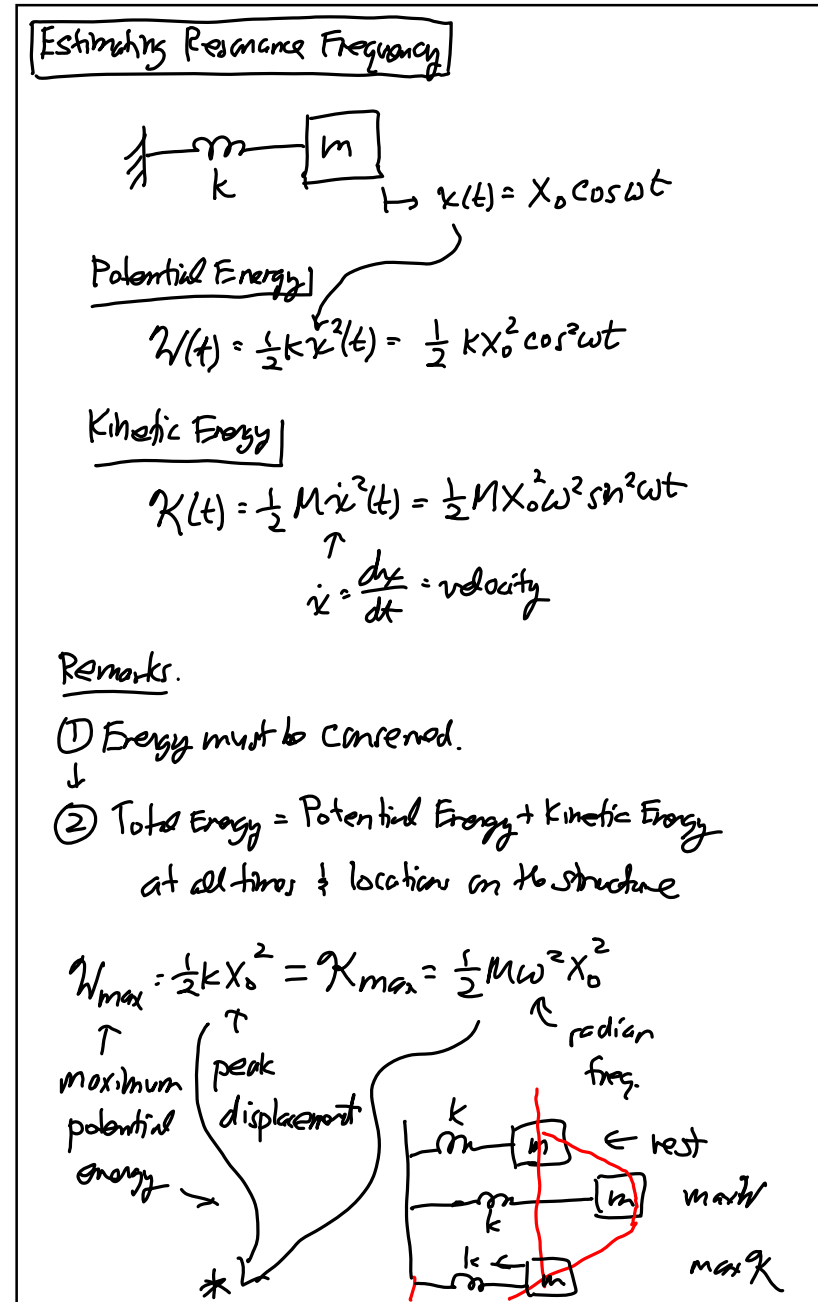 Estimating Resonance Frequency
m
k
x(t) = X₀ cos ωt
Potential Energy
W(t) = ½kx²(t) = ½ kX₀² cos²ωt
Kinetic Energy
K(t) = ½ Mẋ²(t) = ½ MX₀²ω² sin²ωt
ẋ = dx/dt = velocity
Remarks.
① Energy must be conserved.
② Total Energy = Potential Energy + Kinetic Energy
at all times & locations on the structure
Wmax = ½kX₀² = Kmax = ½Mω²X₀²
maximum
potential
energy
peak
displacement
radian
freq.
k m ← rest
k m max W
k m max K
*